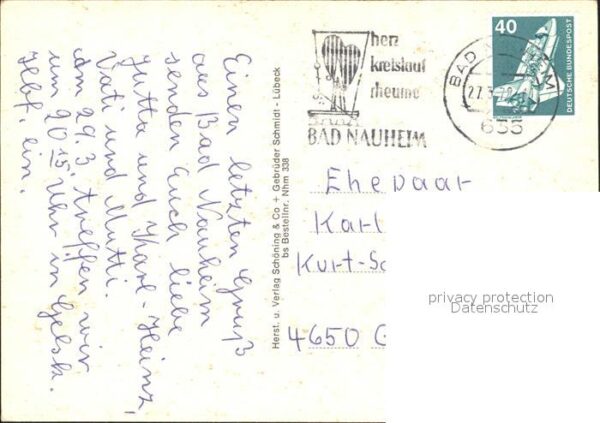 Einen letzten Gruß
aus Bad Nauheim
senden Euch liebe
Jutta und Karl-Heinz,
Vati und Mutti.
Am 29.3 treffen wir
um 20.15 Uhr in Gelsk.
Hbf. ein.
Herst. u. Verlag Schöning & Co + Gebrüder Schmidt - Lübeck
bs Bestellnr. Nhm 338
herz
kreislauf
rheuma
BAD NAUHEIM
40
DEUTSCHE BUNDESPOST
BAD
Ehepaar
Karl
Kurt-Sc
4650 G
privacy protection
Datenschutz